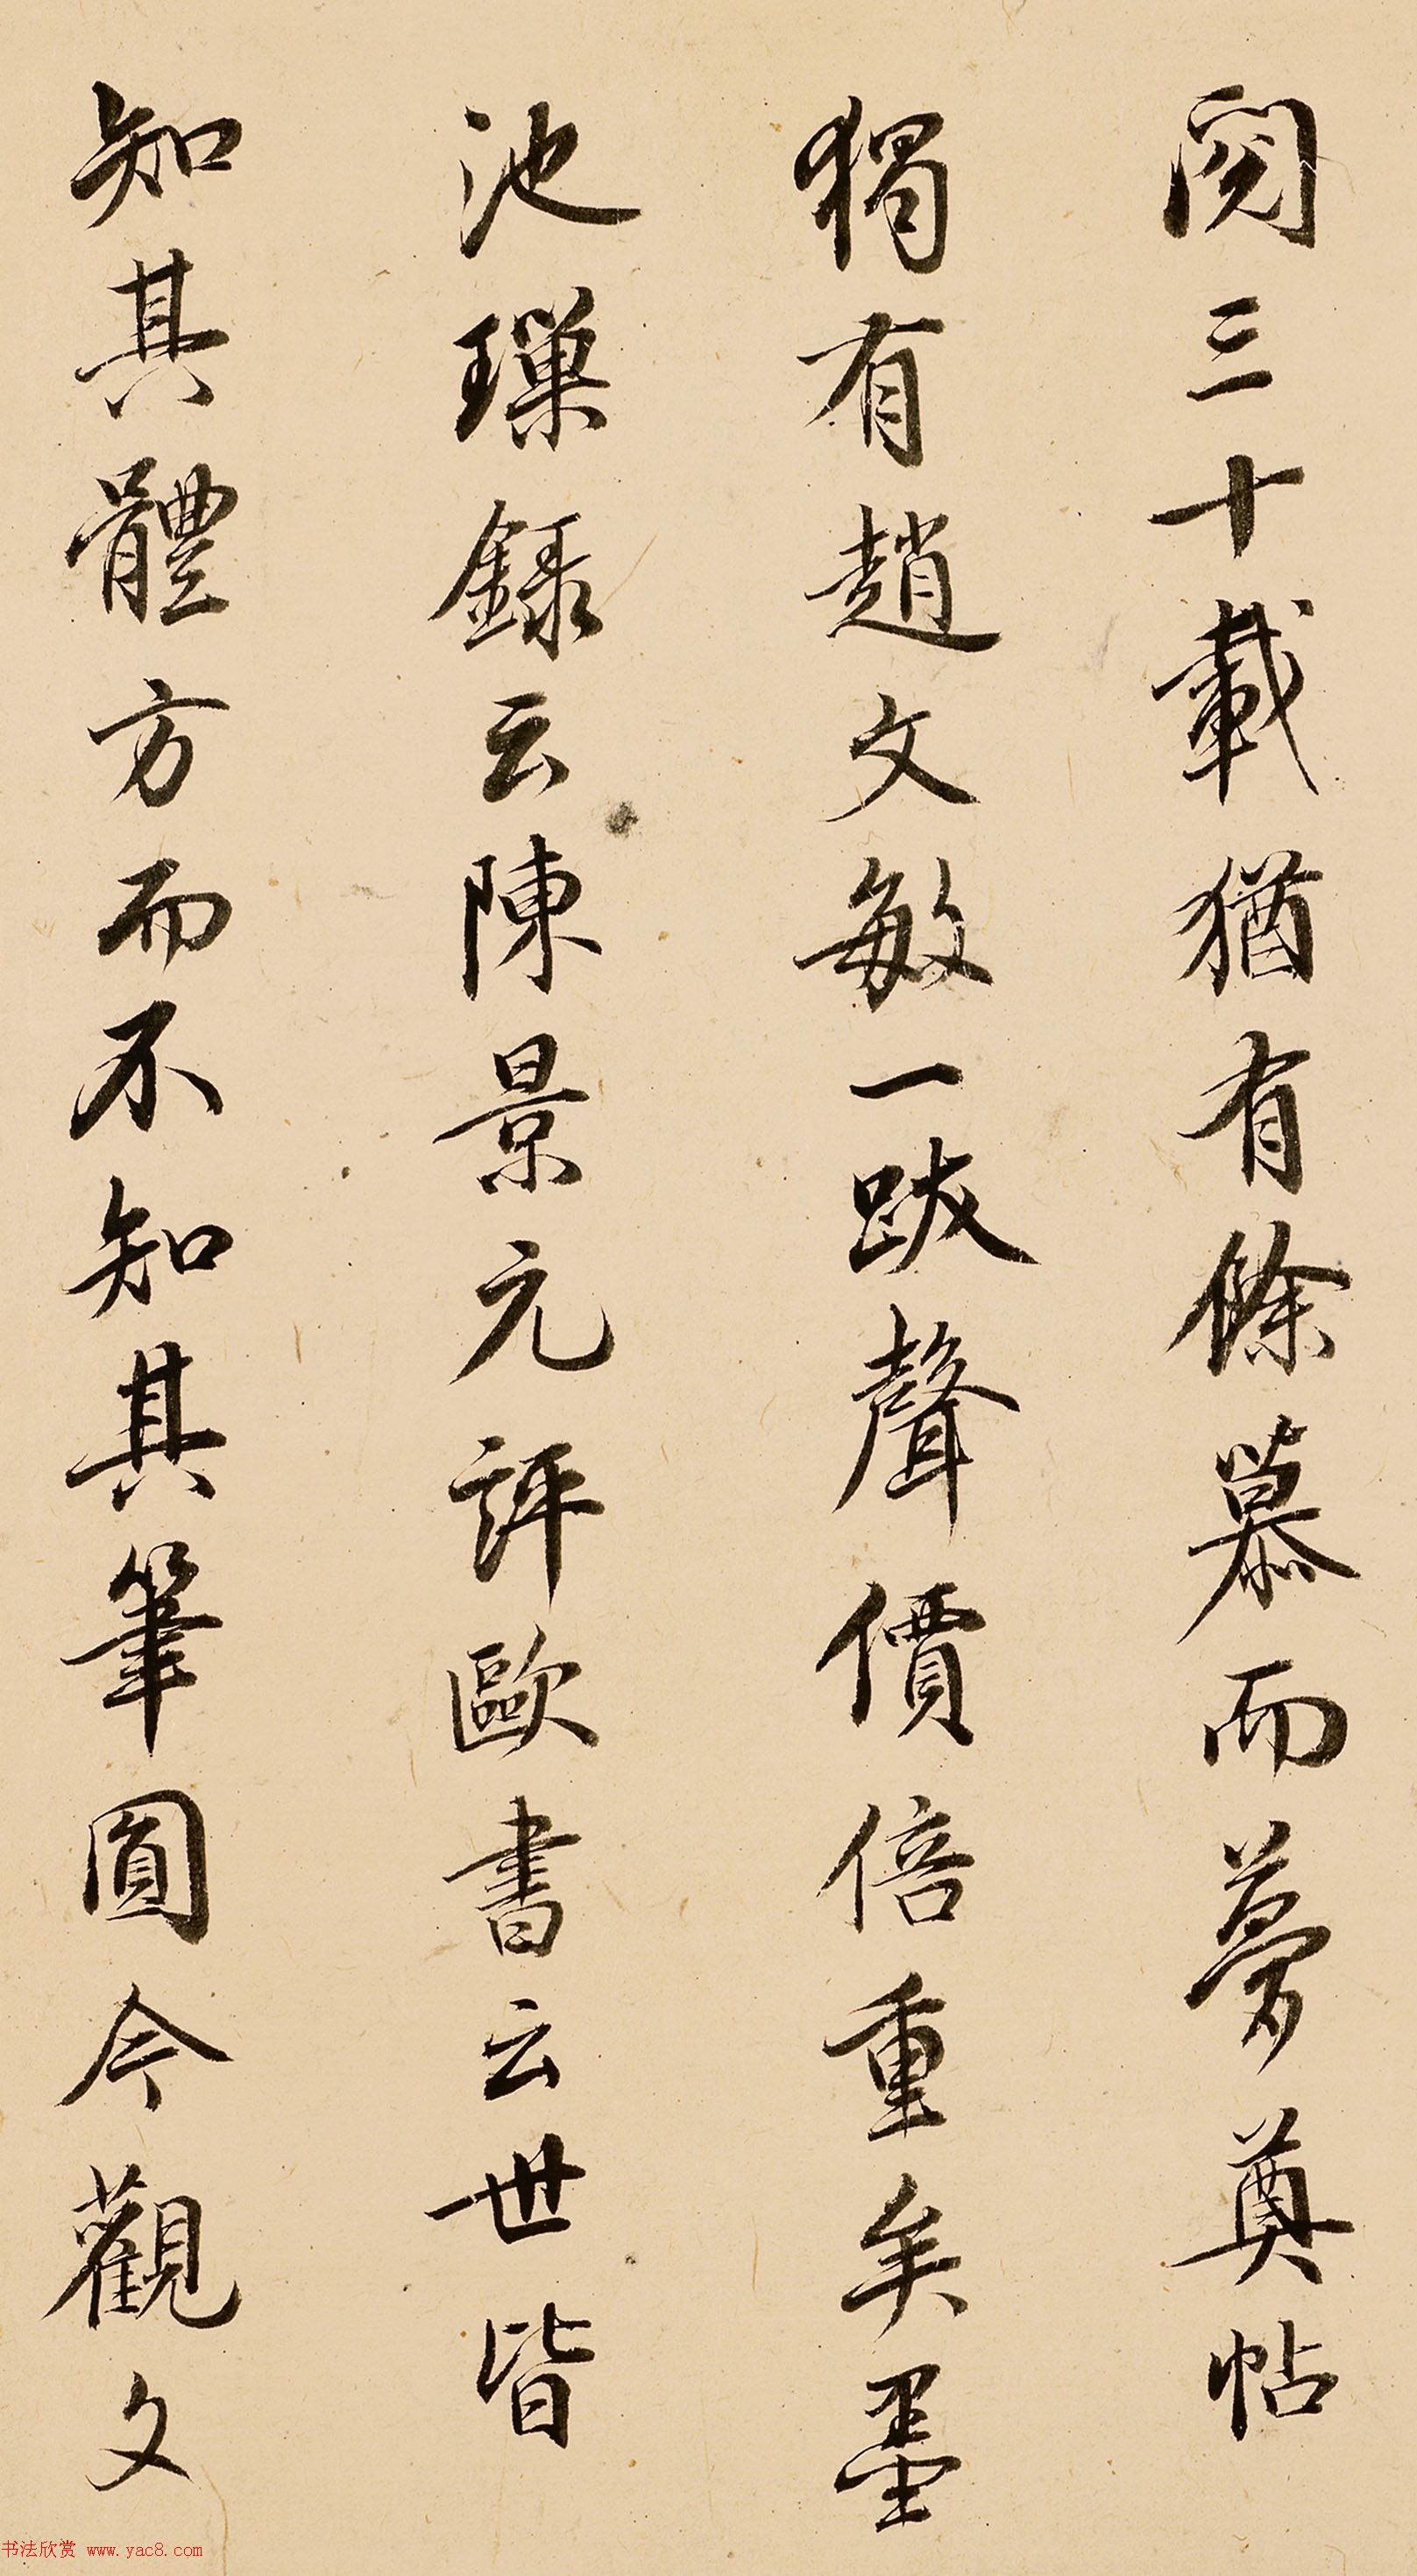 閱三十載猶有餘慕而夢奠帖
獨有趙文敏一跋聲價倍重矣墨
池璅録云陳景元評歐書云世皆
知其體方而不知其筆圓今觀文
书法欣赏 www.yac8.com